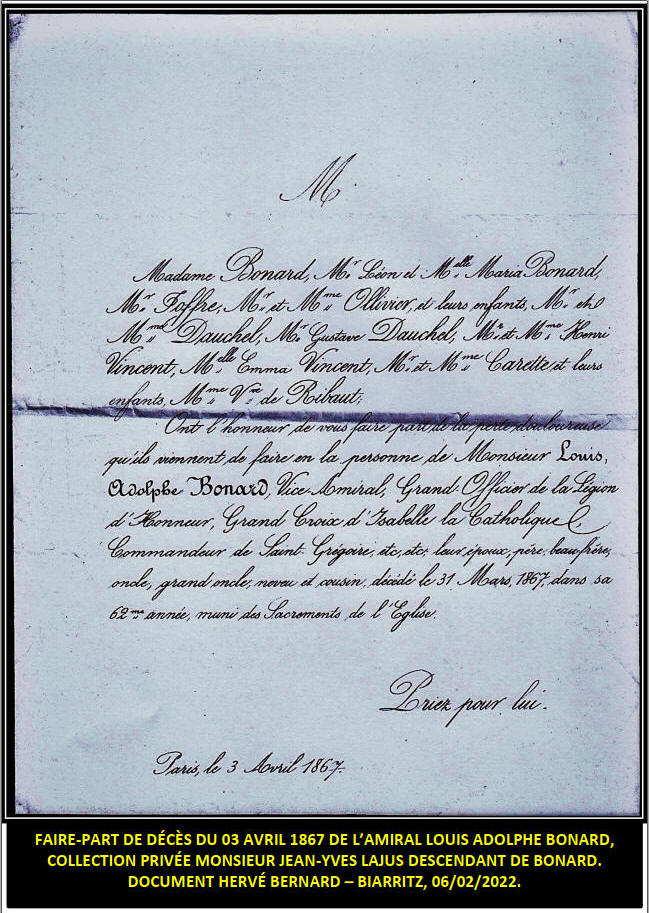 M
Madame Bonard, Mr Léon et Melle Maria Bonard,
Mr Joffre, Mr et Mme Ollivier, et leurs enfants, Mr et
Mme Dauchel, Mr Gustave Dauchel, Mr et Mme Henri
Vincent, Melle Emma Vincent, Mr et Mme Carette et leurs
enfants, Mme Vve de Ribaut;
Ont l'honneur de vous faire part de la perte douloureuse
qu'ils viennent de faire en la personne de Monsieur Louis,
Adolphe Bonard, Vice-Amiral, Grand-Officier de la Légion
d'Honneur, Grand Croix d'Isabelle la Catholique,
Commandeur de Saint Grégoire, etc, etc; leur époux, père, beau-frère,
oncle, grand oncle, neveu et cousin, décédé le 31 Mars, 1867, dans sa
62me année, muni des Sacrements de l'Eglise.
Priez pour lui.
Paris, le 3 Avril 1867.
FAIRE-PART DE DÉCÈS DU 03 AVRIL 1867 DE L'AMIRAL LOUIS ADOLPHE BONARD,
COLLECTION PRIVÉE MONSIEUR JEAN-YVES LAJUS DESCENDANT DE BONARD.
DOCUMENT HERVÉ BERNARD – BIARRITZ, 06/02/2022.